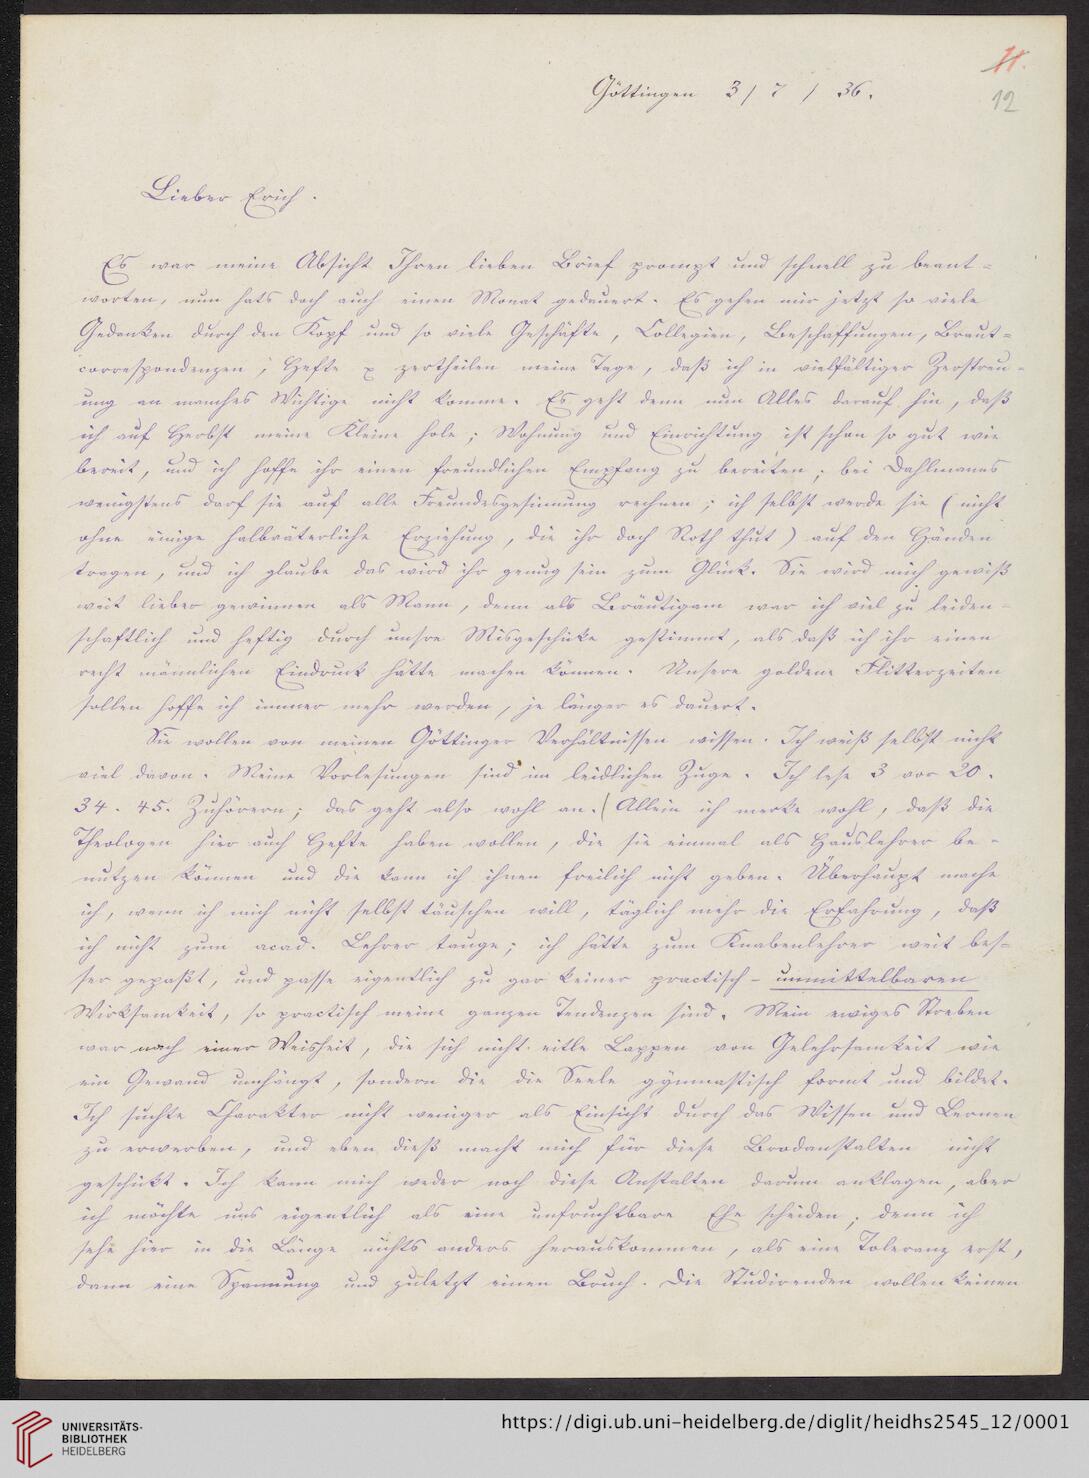 11.
12
Göttingen 3/7/36.
Lieber Erich.
Es war meine Absicht Ihren lieben Brief prompt und schnell zu beant=
worten, nun hats doch auch einen Monat gedauert. Es gehen mir jetzt so viele
Gedanken durch den Kopf und so viele Geschäfte, Collegien, Beschaffungen, Braut=
correspondenzen, Hefte zertheilen meine Tage, daß ich in vielfältiger Zerstreu=
ung an manches Wichtige nicht komme. Es geht denn nun Alles darauf hin, daß
ich auf Herbst meine Kleine hole; Wohnung und Einrichtung ist schon so gut wie
bereit, und ich hoffe ihr einen freundlichen Empfang zu bereiten; bei Dahlmanns
wenigstens darf sie auf alle Freundesgesinnung rechnen; ich selbst werde sie (nicht
ohne einige halbväterliche Erziehung, die ihr doch Noth thut) auf den Händen
tragen, und ich glaube das wird ihr genug sein zum Glück. Sie wird mich gewiß
weit lieber gewinnen als Mann, denn als Bräutigam war ich viel zu leiden=
schaftlich und heftig durch unsre Misgeschicke gestimmt, als daß ich ihr einen
recht männlichen Eindruck hätte machen können. Unsere goldene Flitterzeiten
sollen hoffe ich immer mehr werden, je länger es dauert.
Sie wollen von meinen Göttinger Verhältnissen wissen. Ich weiß selbst nicht
viel davon. Meine Vorlesungen sind im leidlichen Zuge. Ich lese 3 vor 20.
34. 45. Zuhörern; das geht also wohl an. Allein ich merke wohl, daß die
Theologen hier auch Hefte haben wollen, die sie einmal als Hauslehrer be=
nutzen können und die kann ich ihnen freilich nicht geben. Überhaupt mache
ich, wenn ich mich nicht selbst täuschen will, täglich mehr die Erfahrung, daß
ich nicht zum acad. Lehrer tauge; ich hätte zum Knabenlehrer weit bes=
ser gepaßt, und passe eigentlich zu gar keiner practisch-unmittelbaren
Wirksamkeit, so practisch meine ganzen Tendenzen sind. Mein ewiges Streben
war nach einer Weisheit, die sich nicht eitle Lappen von Gelehrsamkeit wie
ein Gewand umhängt, sondern die die Seele gymnastisch formt und bildet.
Ich suchte Charakter nicht weniger als Einsicht durch das Wissen und Lernen
zu erwerben, und eben dieß macht mich für diese Brodanstalten nicht
geschickt. Ich kann mich weder noch diese Anstalten darum anklagen, aber
ich möchte uns eigentlich als eine unfruchtbare Ehe scheiden; denn ich
sehe hier in die Länge nichts anders herauskommen, als eine Toleranz erst,
dann eine Spannung und zuletzt einen Bruch. Die Studirenden wollen keinen
UNIVERSITÄTS-
BIBLIOTHEK
HEIDELBERG
https://digi.ub.uni-heidelberg.de/diglit/heidhs2545_12/0001